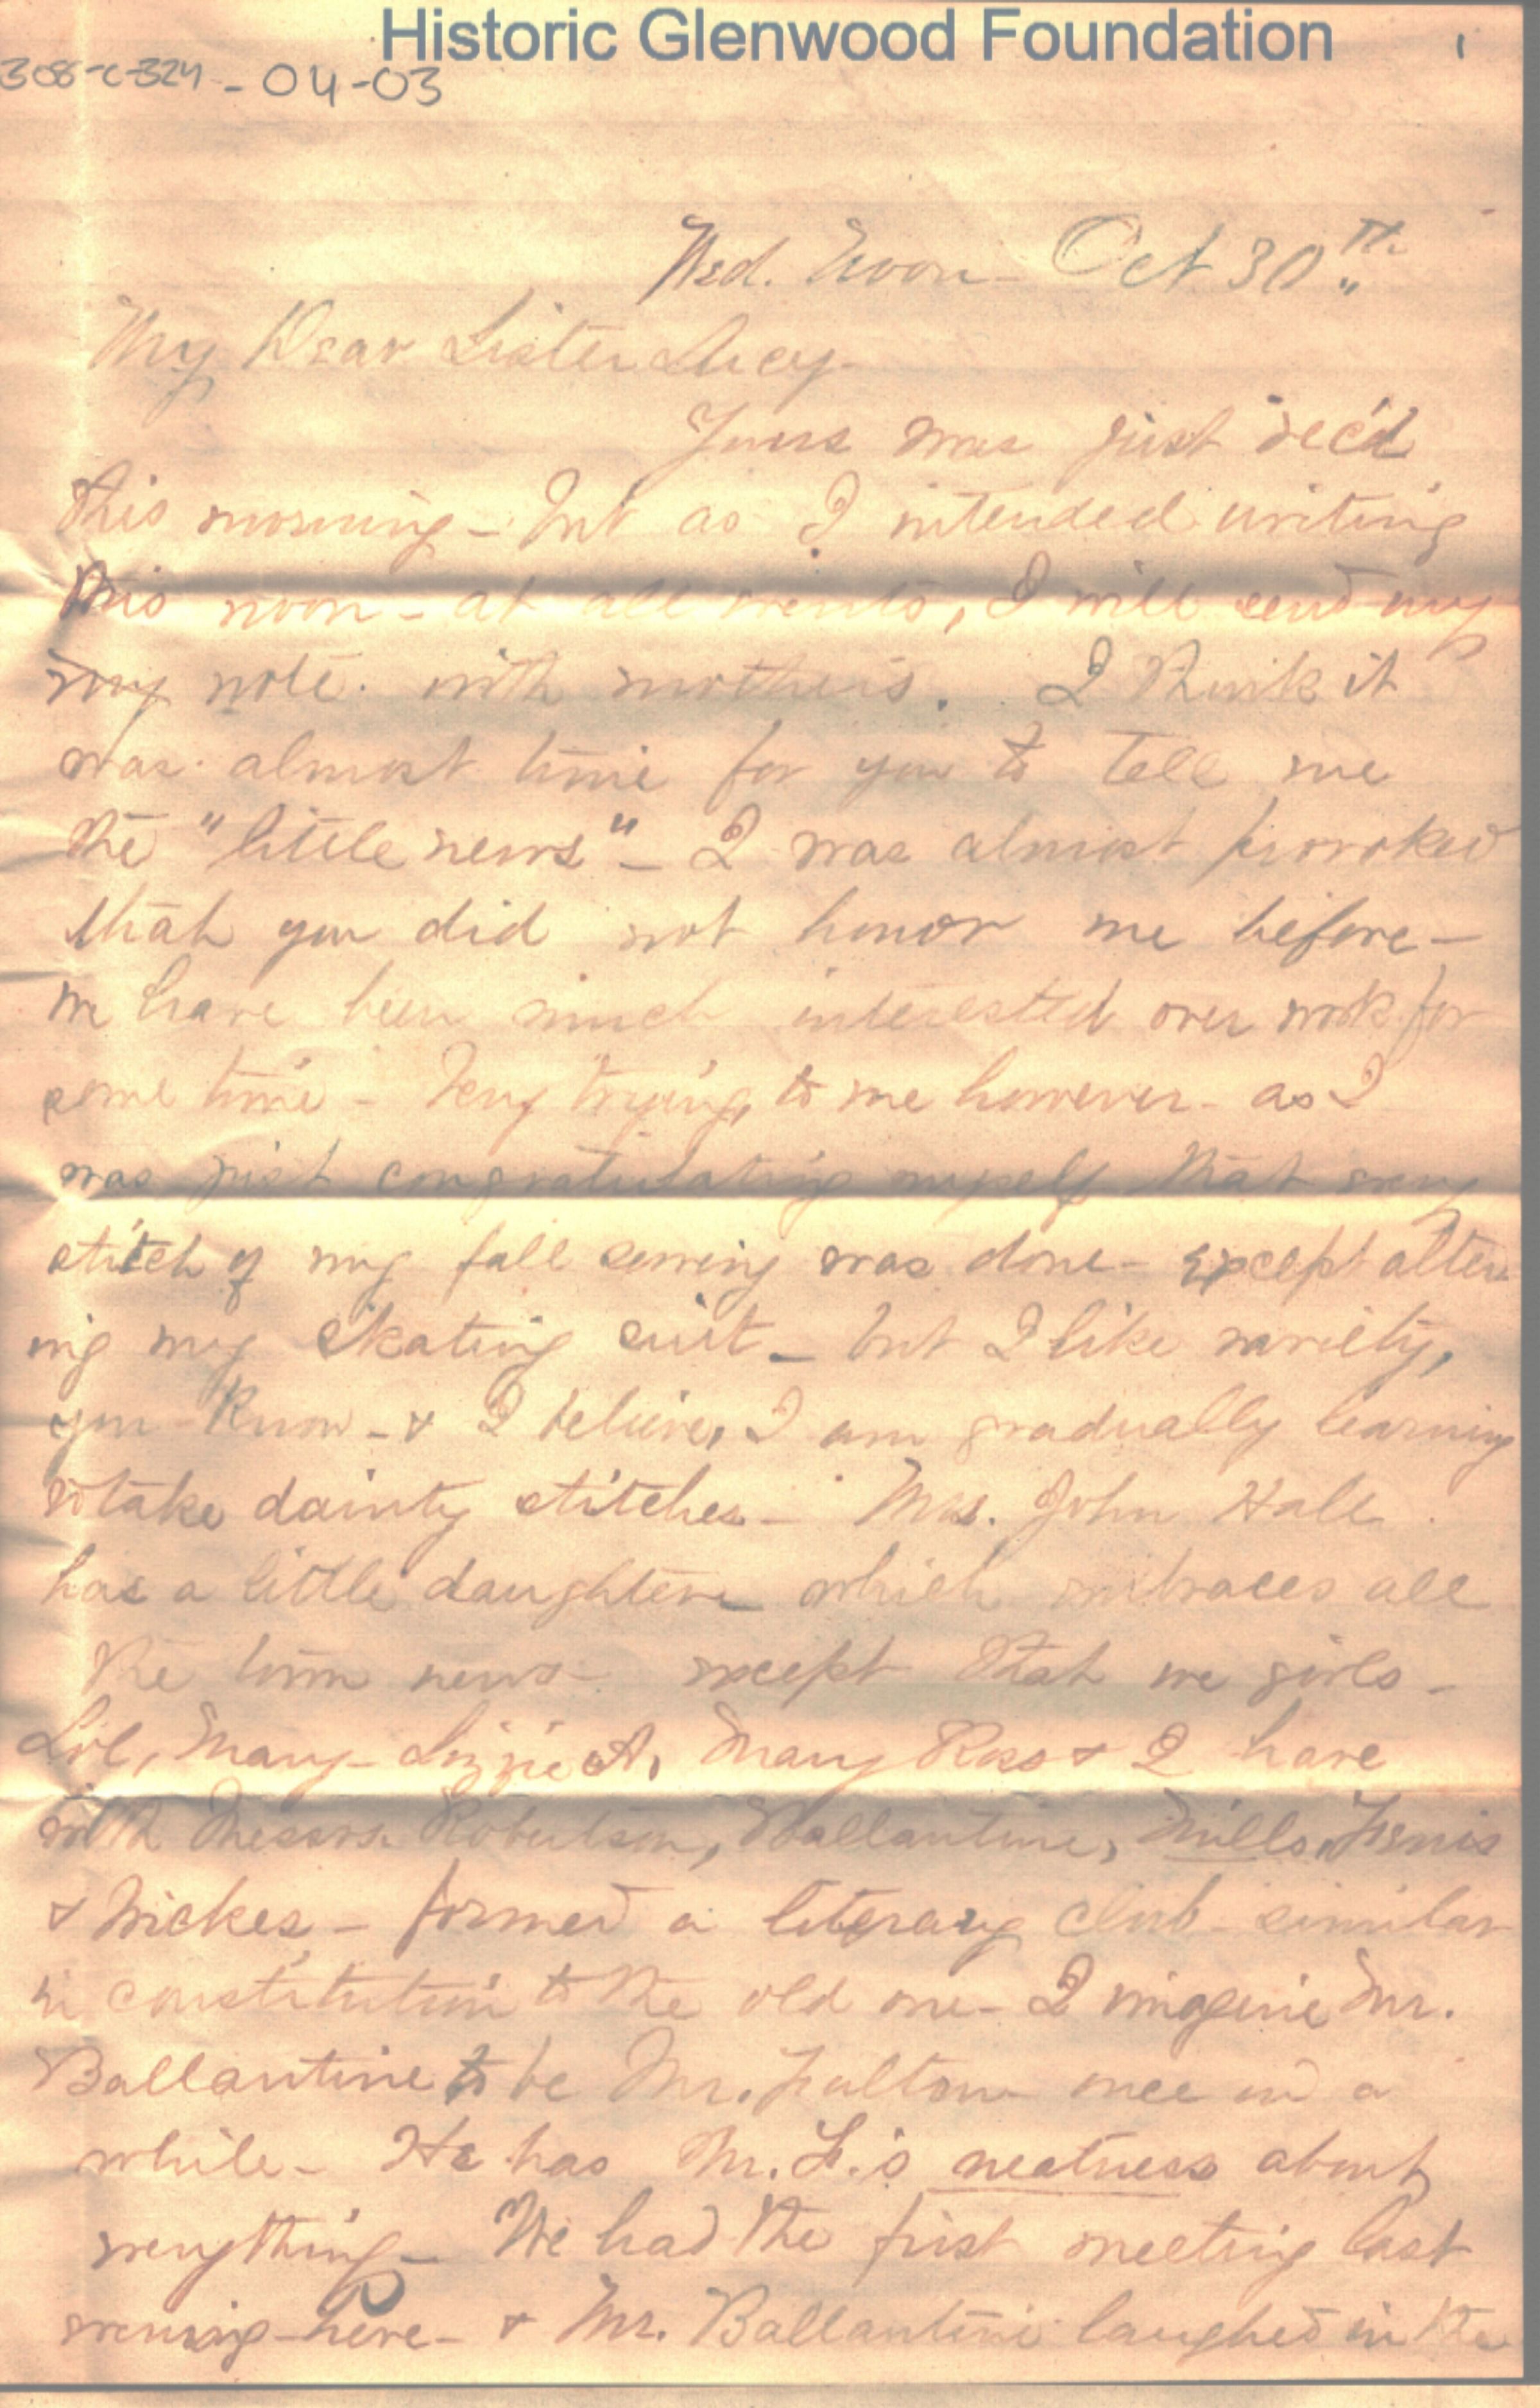 Historic Glenwood Foundation
1
308-C-324-04-03
Wed. Noon - Oct 30th
My Dear Sister Lucy -
Yours was just rec'd
this morning - but as I intended writing
this noon - at all events, I will send my
my note with mother's. I think it
was almost time for you to tell me
the "little news" - I was almost provoked
that you did not honor me before -
we have been much interested over work for
some time - Very trying, to me however - as I
was just congratulating myself that every
stitch of my fall sewing was done - except alter
ing my skating suit - but I like variety,
you know - & I believe, I am gradually learning
to take dainty stitches - Mrs. John Hall
has a little daughter - which embraces all
the town news - except that we girls -
Lil, Mary - Lizzie A, Mary Ross & I have
with Messrs. Robertson, Ballantine, Mills,
& Wickes - formed a literary club - similar
in constitution to the old one - I imagine Mr.
Ballantine to be Mr. Fulton once in a
while - He has Mr. F.'s neatness about
everything - We had the first meeting last
evening - here - & Mr. Ballantine laughed in the